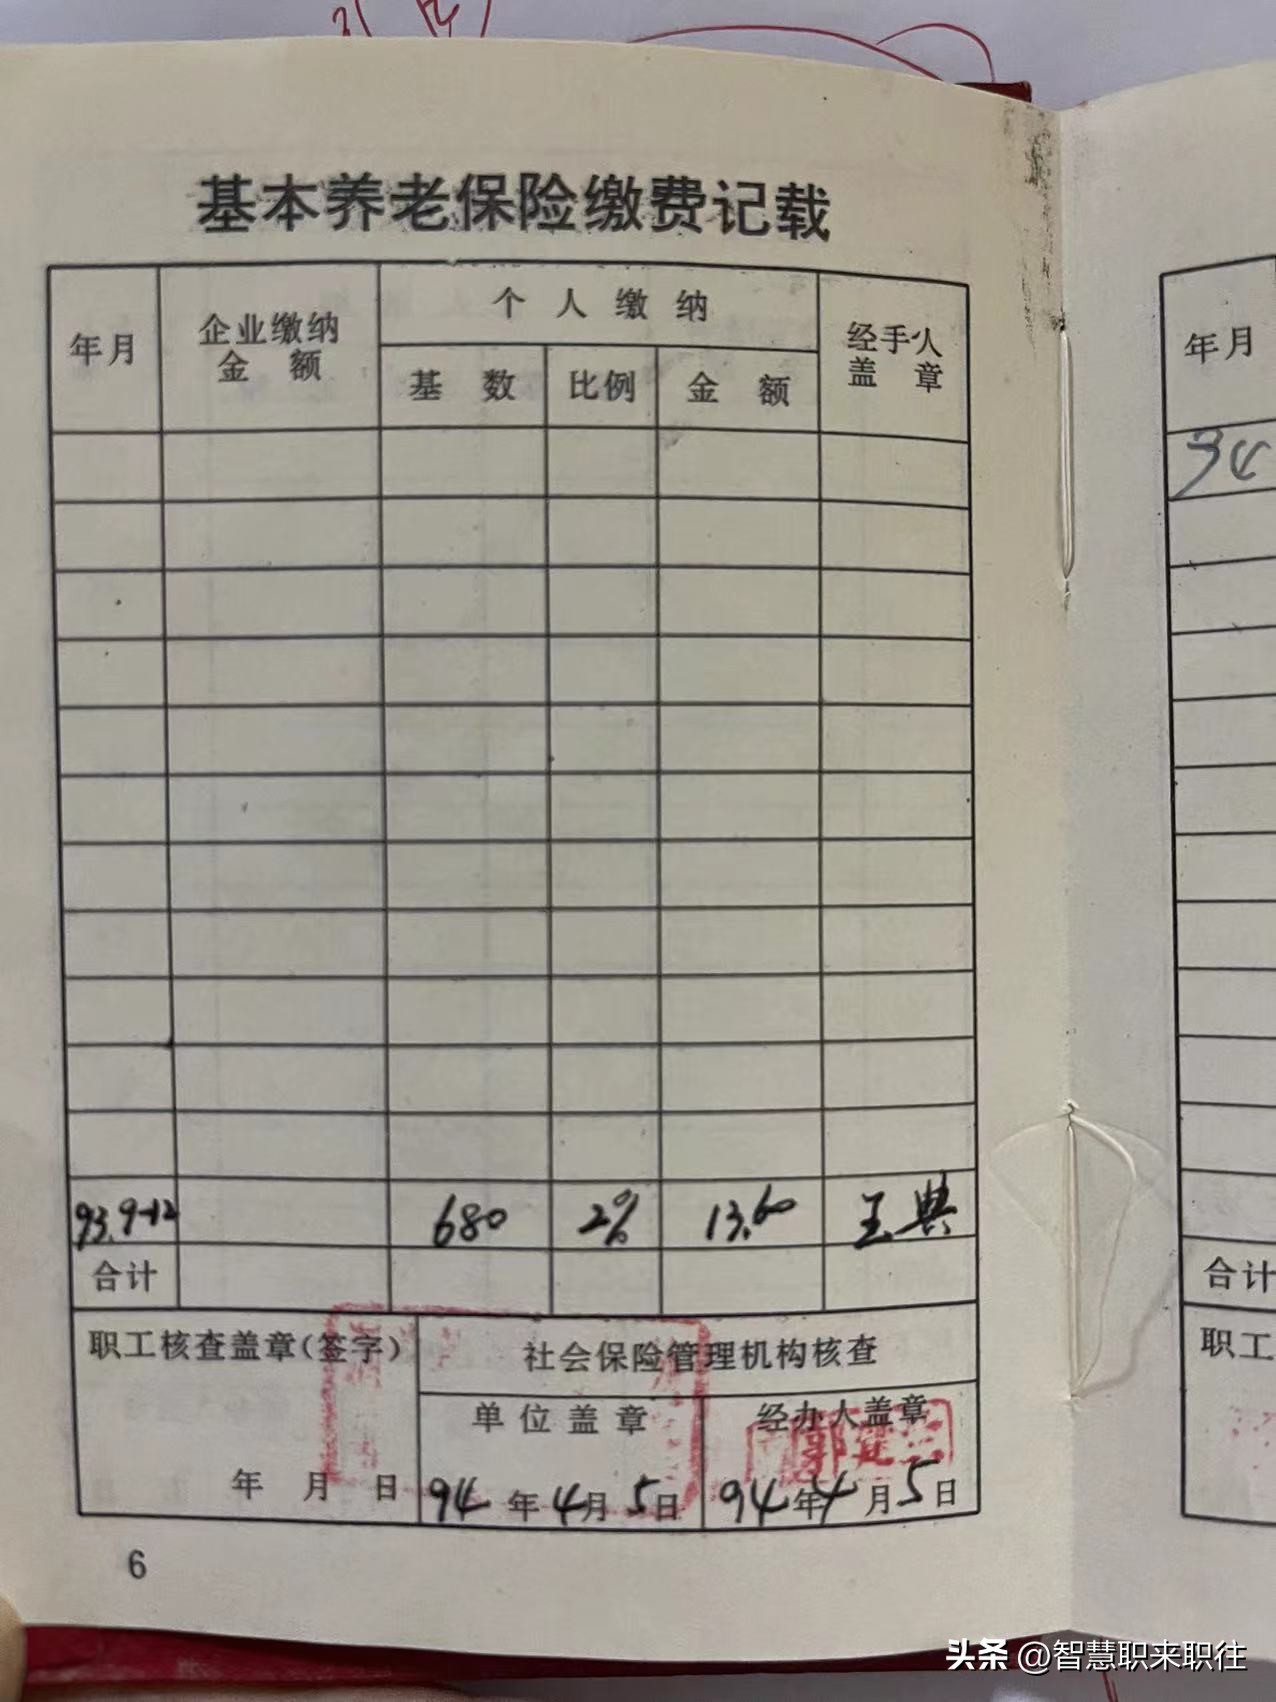 基本养老保险缴费记载
年月 企业缴纳金额 个人缴纳 经手人盖章
基数 比例 金额
93.9-12 680 2% 13.60 王典
合计
职工核查盖章(签字) 社会保险管理机构核查
单位盖章 经办人盖章
年 月 日 94年4月5日 94年4月5日
6
年月
94
合计
职工
头条 @智慧职来职往